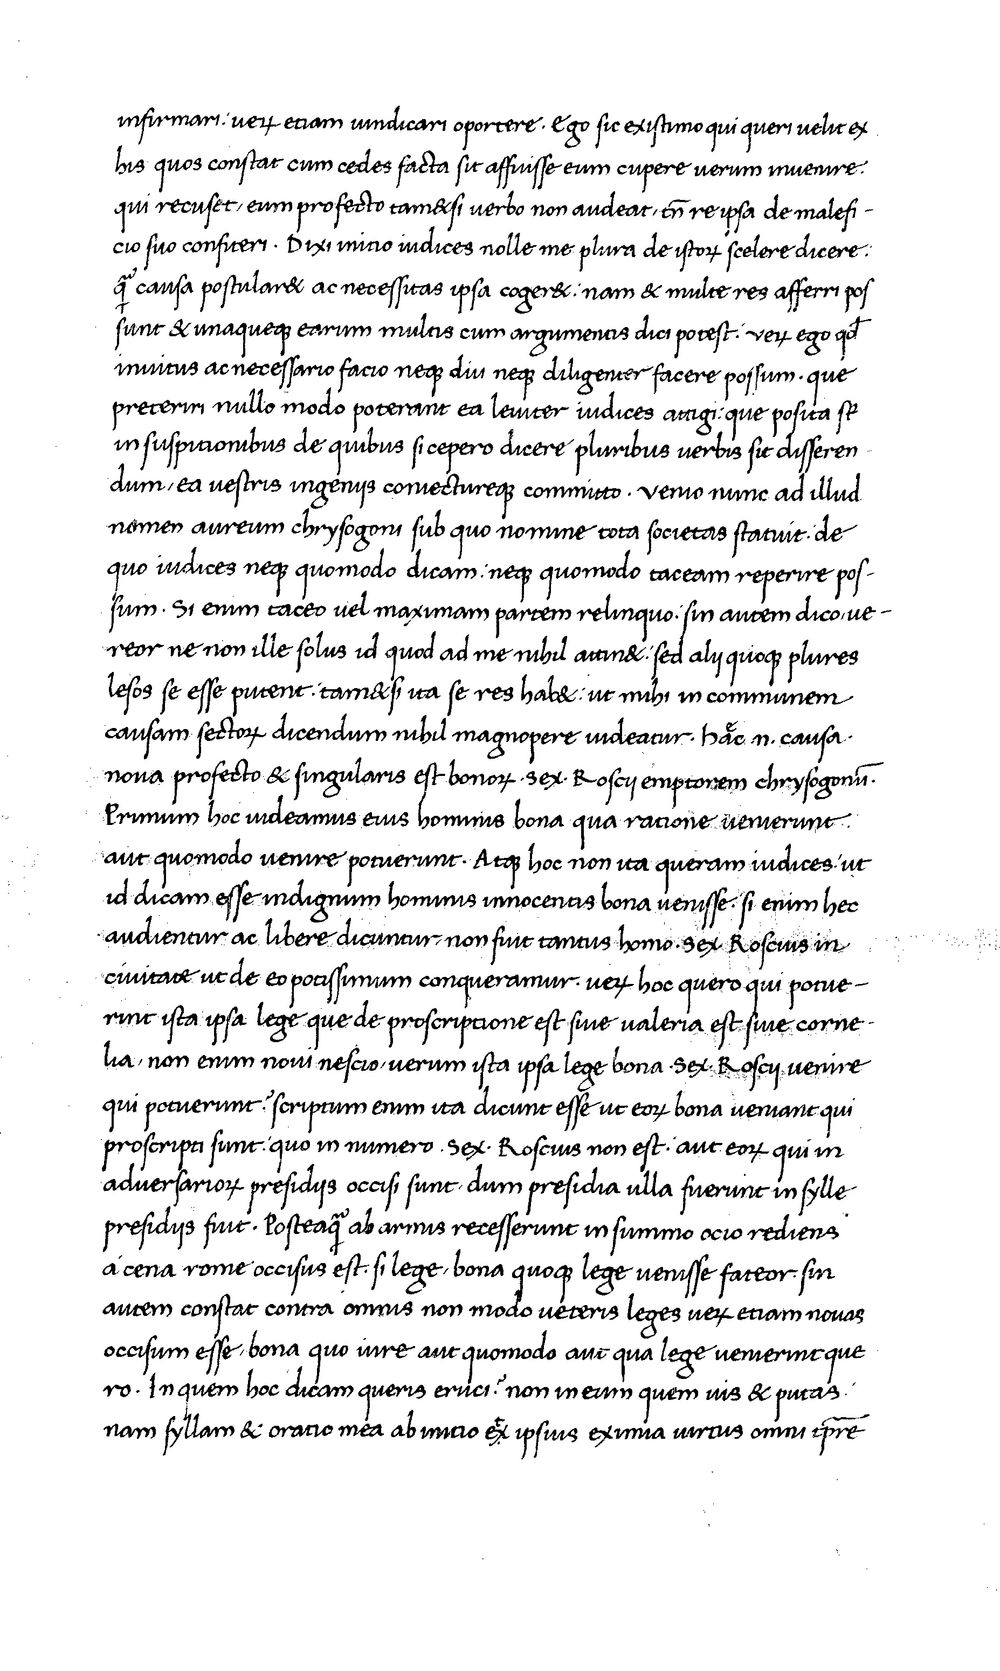 infirmari: ueꝝ etiam uindicari oportere. Ego sic existimo qui queri uelit ex
his quos constat cum cedes facta sit affuisse eum cupere uerum inuenire:
qui recuset, eum profecto tam&si uerbo non audeat, tn̄ re ipsa de malefi-
cio suo confiteri. Dixi initio iudices nolle me plura de istoꝝ scelere dicere:
qͣ̃ causa postular& ac necessitas ipsa coger&: nam & multe res afferri pos
sunt & unaqueqꝫ earum multis cum argumentis dici potest: Veꝝ ego qd̄
inuitus ac necessario facio neqꝫ diu neqꝫ diligenter facere possum. que
preteriri nullo modo poterant ea leuiter iudices attigi: que posita st̄
in suspitionibus de quibus si cepero dicere pluribus uerbis sit disseren
dum, ea uestris ingeniis coniectureqꝫ committo. Venio nunc ad illud
nomen aureum chrysogoni sub quo nomine tota societas statuit: de
quo iudices neqꝫ quomodo dicam: neqꝫ quomodo taceam reperire pos-
sum. Si enim taceo uel maximam partem relinquo: sin autem dico, ue-
reor ne non ille solus id quod ad me nihil attin&: sed alij quoqꝫ plures
lesos se esse putent: tam&si ita se res hab&: ut mihi in communem
causam sectoꝝ dicendum nihil magnopere uideatur. Hac̄ n. causa.
noua profecto & singularis est bonoꝝ .Sex. Roscij emptorem chrysogonū.
Primum hoc uideamus eius hominis bona qua ratione uenierunt:
aut quomodo uenire potuerunt. Atqꝫ hoc non ita queram iudices: ut
id dicam esse indignum hominis innocentis bona uenisse: si enim hec
audientur ac libere dicuntur, non fuit tantus homo .Sex. Roscius in
ciuitate ut de eo potissimum conqueramur. ueꝝ hoc quero qui potue-
rint ista ipsa lege que de proscriptione est siue ualeria est siue corne-
lia, non enim noui nescio, uerum ista ipsa lege bona .Sex. Roscij uenire
qui potuerunt? scriptum enim ita dicunt esse ut eoꝝ bona ueniant qui
proscripti sunt: quo in numero .Sex. Roscius non est: aut eoꝝ qui in
aduersarioꝝ presidijs occisi sunt, dum presidia ulla fuerunt in sylle
presidijs fuit. Posteaqͣ̃ ab armis recesserunt in summo ocio rediens
a cena rome occisus est: si lege, bona quoqꝫ lege uenisse fateor: sin
autem constat contra omnis non modo ueteris leges ueꝝ etiam nouas
occisum esse, bona quo iure aut quomodo aut qua lege uenierint que
ro. In quem hoc dicam queris eruci? non in eum quem uis & putas:
nam syllam & oratio mea ab initio & ipsius eximia uirtus omni tp̄re